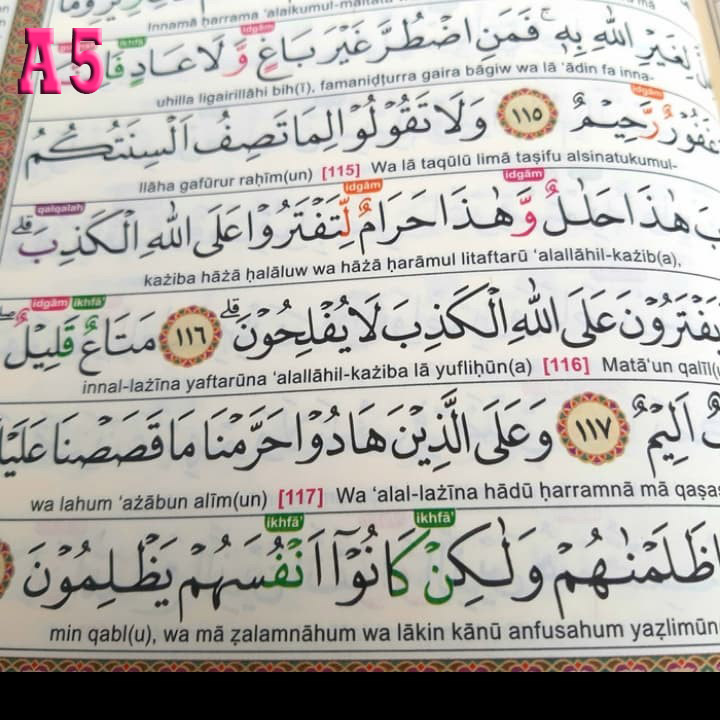 A5
Innamā ḥarrama ‘alaikumul-maitata
لِغَيْرِ اللّٰهِ بِهٖۚ فَمَنِ اضْطُرَّ غَيْرَ بَاغٍ وَّلَا عَادٍ
idgām ikhfā’
uhilla ligairillāhi bih(ī), famaniḍṭurra gaira bāgiw wa lā ‘ādin fa inna-
idgām
غَفُوْرٌ رَّحِيْمٌ ١١٥ وَلَا تَقُوْلُوْا لِمَا تَصِفُ اَلْسِنَتُكُمُ
llāha gafūrur raḥīm(un) [115] Wa lā taqūlū limā taṣifu alsinatukumul-
idgām idgām qalqalah
هٰذَا حَلٰلٌ وَّهٰذَا حَرَامٌ لِّتَفْتَرُوْا عَلَى اللّٰهِ الْكَذِبَۗ
każiba hāżā ḥalāluw wa hāżā ḥarāmul litaftarū ‘alallāhil-każib(a),
يَفْتَرُوْنَ عَلَى اللّٰهِ الْكَذِبَ لَا يُفْلِحُوْنَۗ ١١٦ مَتَاعٌ قَلِيْلٌ
ikhfā’ idgām
innal-lażīna yaftarūna ‘alallāhil-każiba lā yufliḥūn(a) [116] Matā‘un qalīl(
اَلِيْمٌ ١١٧ وَعَلَى الَّذِيْنَ هَادُوْا حَرَّمْنَا مَا قَصَصْنَا
wa lahum ‘ażābun alīm(un) [117] Wa ‘alal-lażīna hādū ḥarramnā mā
ظَلَمْنٰهُمْ وَلٰكِنْ كَانُوْٓا اَنْفُسَهُمْ يَظْلِمُوْنَ
ikhfā’ ikhfā’
min qabl(u), wa mā ẓalamnāhum wa lākin kānū anfusahum yaẓlimūn